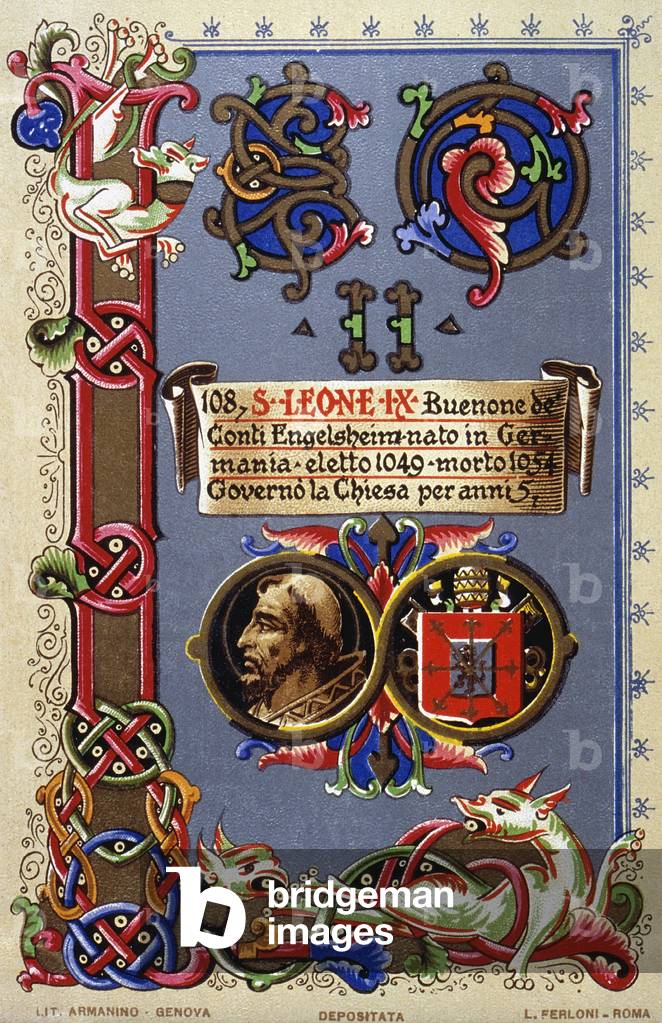 LEO
▴ II ▴
108, S·LEONE·IX· Buenone de'
Conti Engelsheim·nato in Ger-
mania·eletto 1049·morto 1054
Governò la Chiesa per anni 5,
b bridgeman
images
LIT. ARMANINO - GENOVA DEPOSITATA L. FERLONI - ROMA